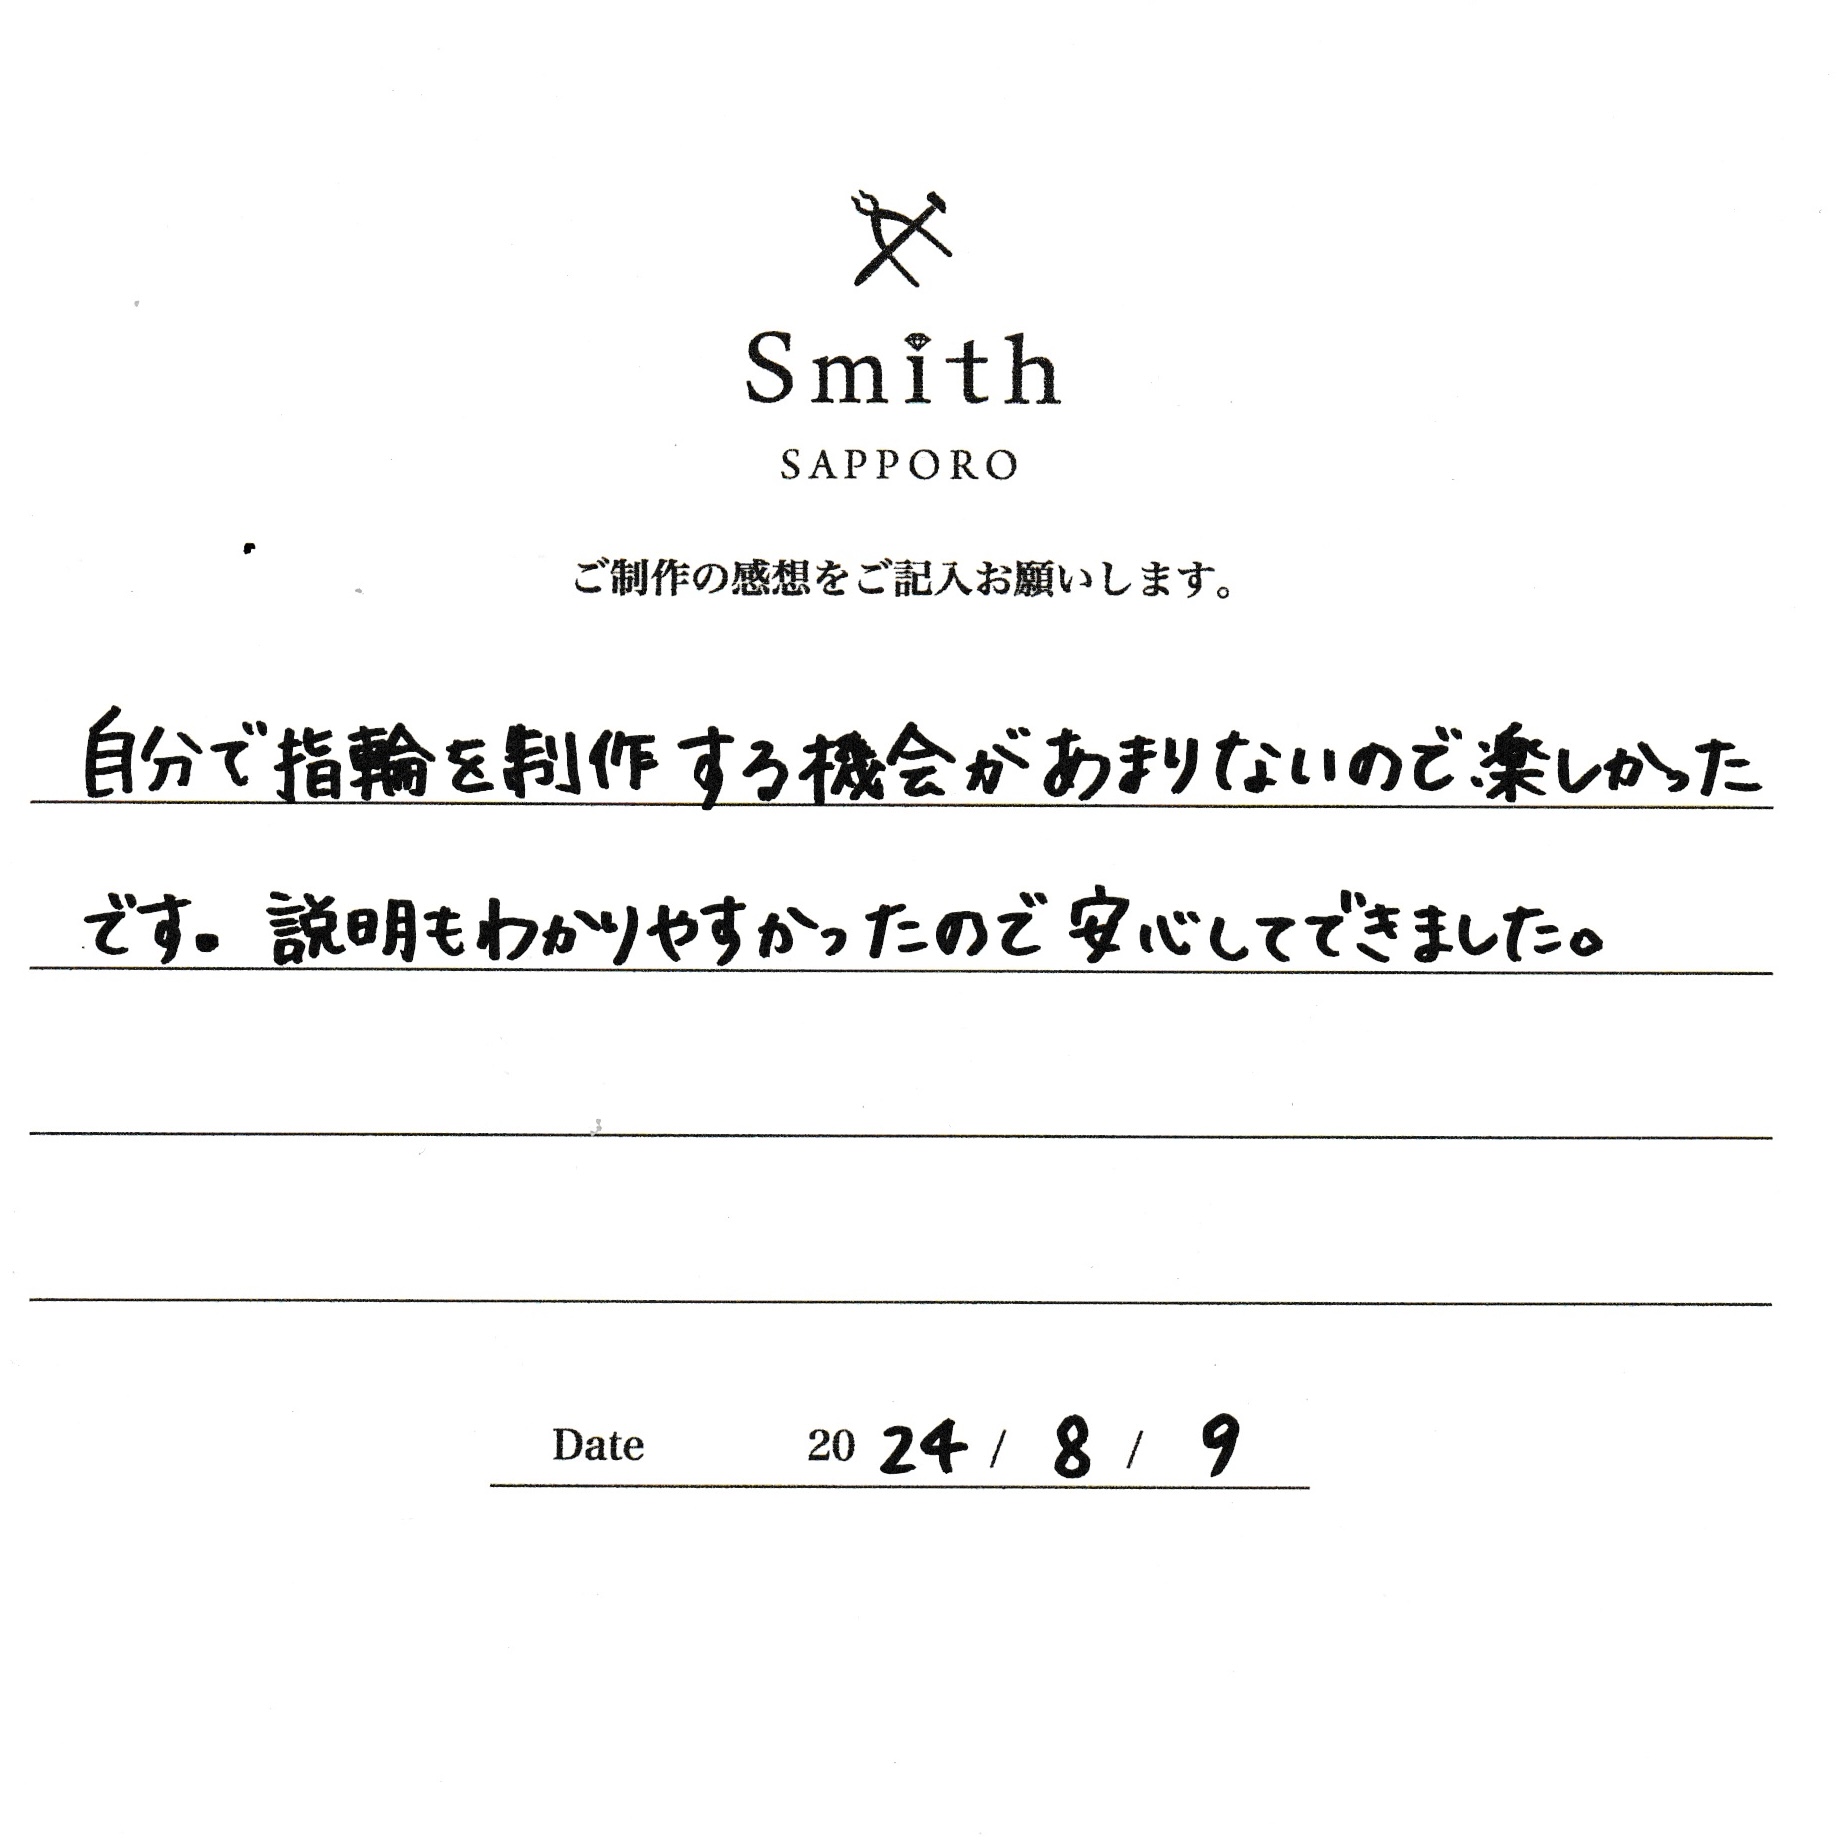 Smith
SAPPORO
ご制作の感想をご記入お願いします。
自分で指輪を制作する機会があまりないので楽しかった
です。説明もわかりやすかったので安心してできました。
Date 2024 / 8 / 9